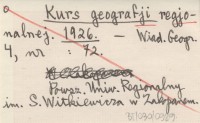 Kurs geografji regjo-
nalnej. 1926. — Wiad. Geogr.
4, nr : 72.
Powsz. Uniw. Regionalny
im. S. Witkiewicza w Zakopanem.